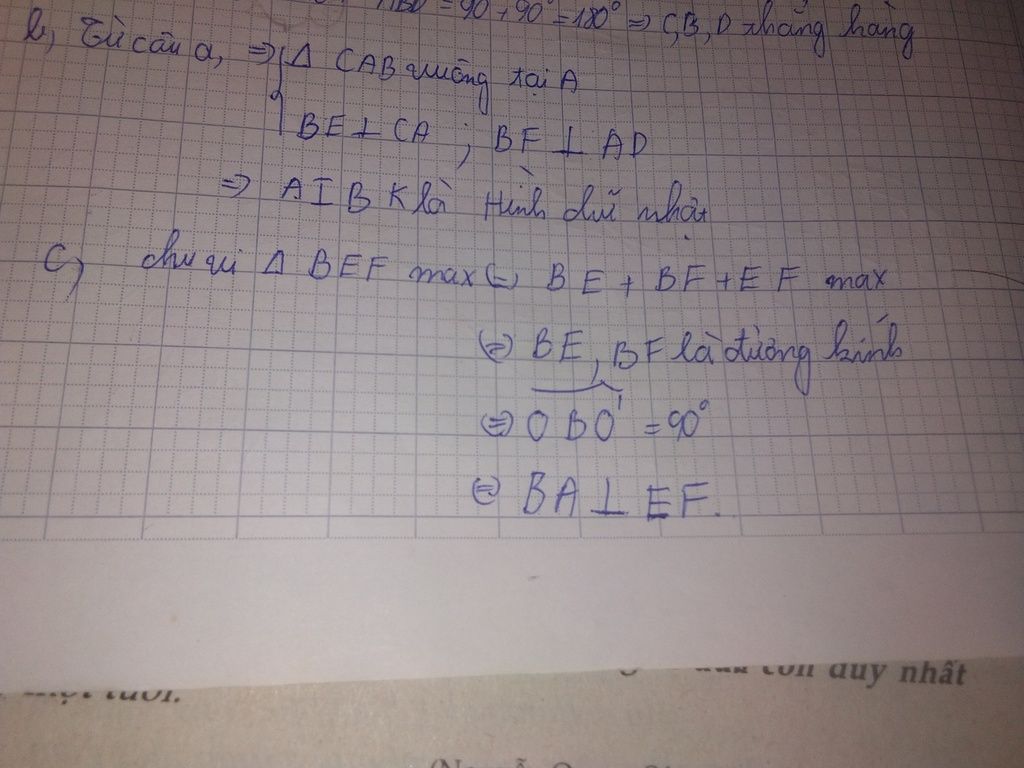 = 90 + 90° = 180° => C, B, D thẳng hàng
b, Từ câu a, => { Δ CAB vuông tại A
BE ⊥ CA ; BF ⊥ AD
=> AIBK là Hình chữ nhật
C) chu vi Δ BEF max <=> BE + BF + EF max
<=> BE, BF là đường kính
<=> OBO' = 90°
<=> BA ⊥ EF.
con duy nhất
tuổi.